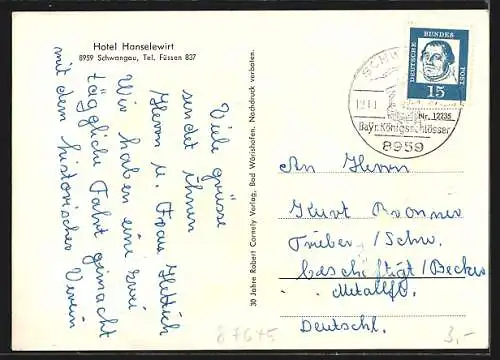 Hotel Hanselewirt
8959 Schwangau, Tel. Füssen 837
Viele grüsse
sendet ihnen
Herrn u. Frau Hettich
Wir haben eine zwei
täggliche Fahrt gemacht
mit dem historischer Verein
30 Jahre Robert Cornely Verlag, Bad Wörishofen. Nachdruck verboten.
DEUTSCHE BUNDES POST
15
SCHW
Nr. 12235
Bayr. Königsschlösser
8959
An Herrn
Kurt Bronner
Triberg/Schw.
beschäftigt/Becker
Metallf.
Deutschl.
87645
3,-